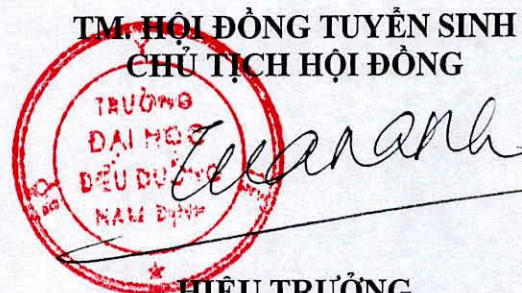 TM. HỘI ĐỒNG TUYỂN SINH
CHỦ TỊCH HỘI ĐỒNG
TRƯỜNG
ĐẠI HỌC
ĐIỀU DƯỠNG
NAM ĐỊNH
HIỆU TRƯỞNG